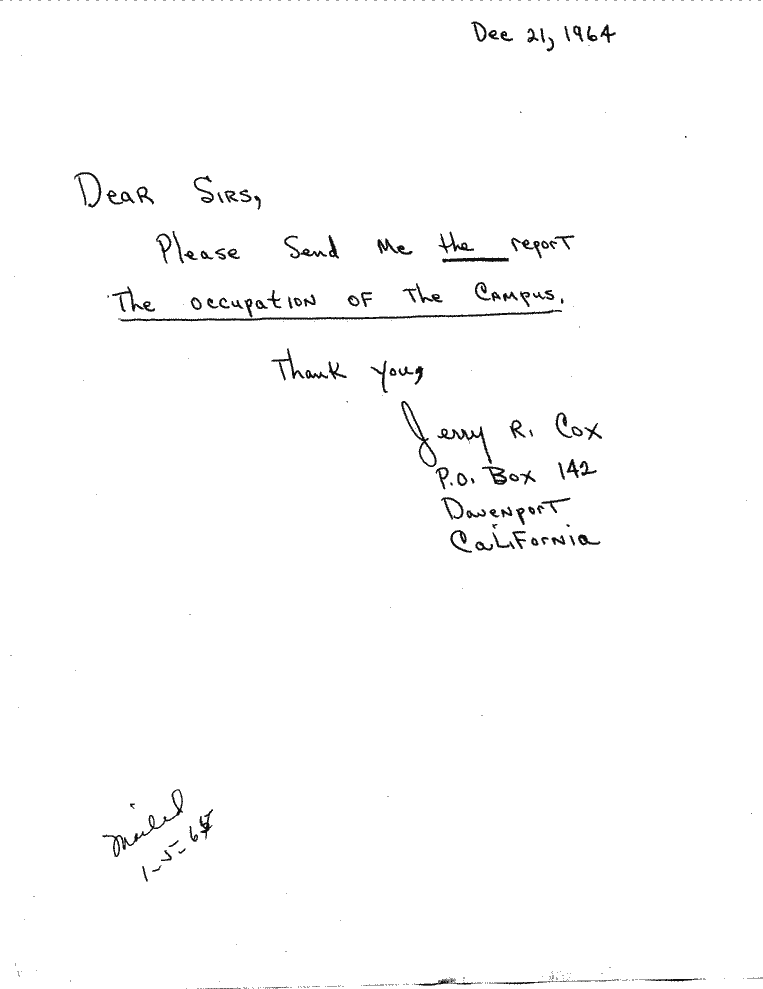 Dec 21, 1964
Dear Sirs,
Please Send Me the report
The occupation of The Campus.
Thank you,
Jerry R. Cox
P.O. Box 142
Davenport
California
mailed
1-5-65